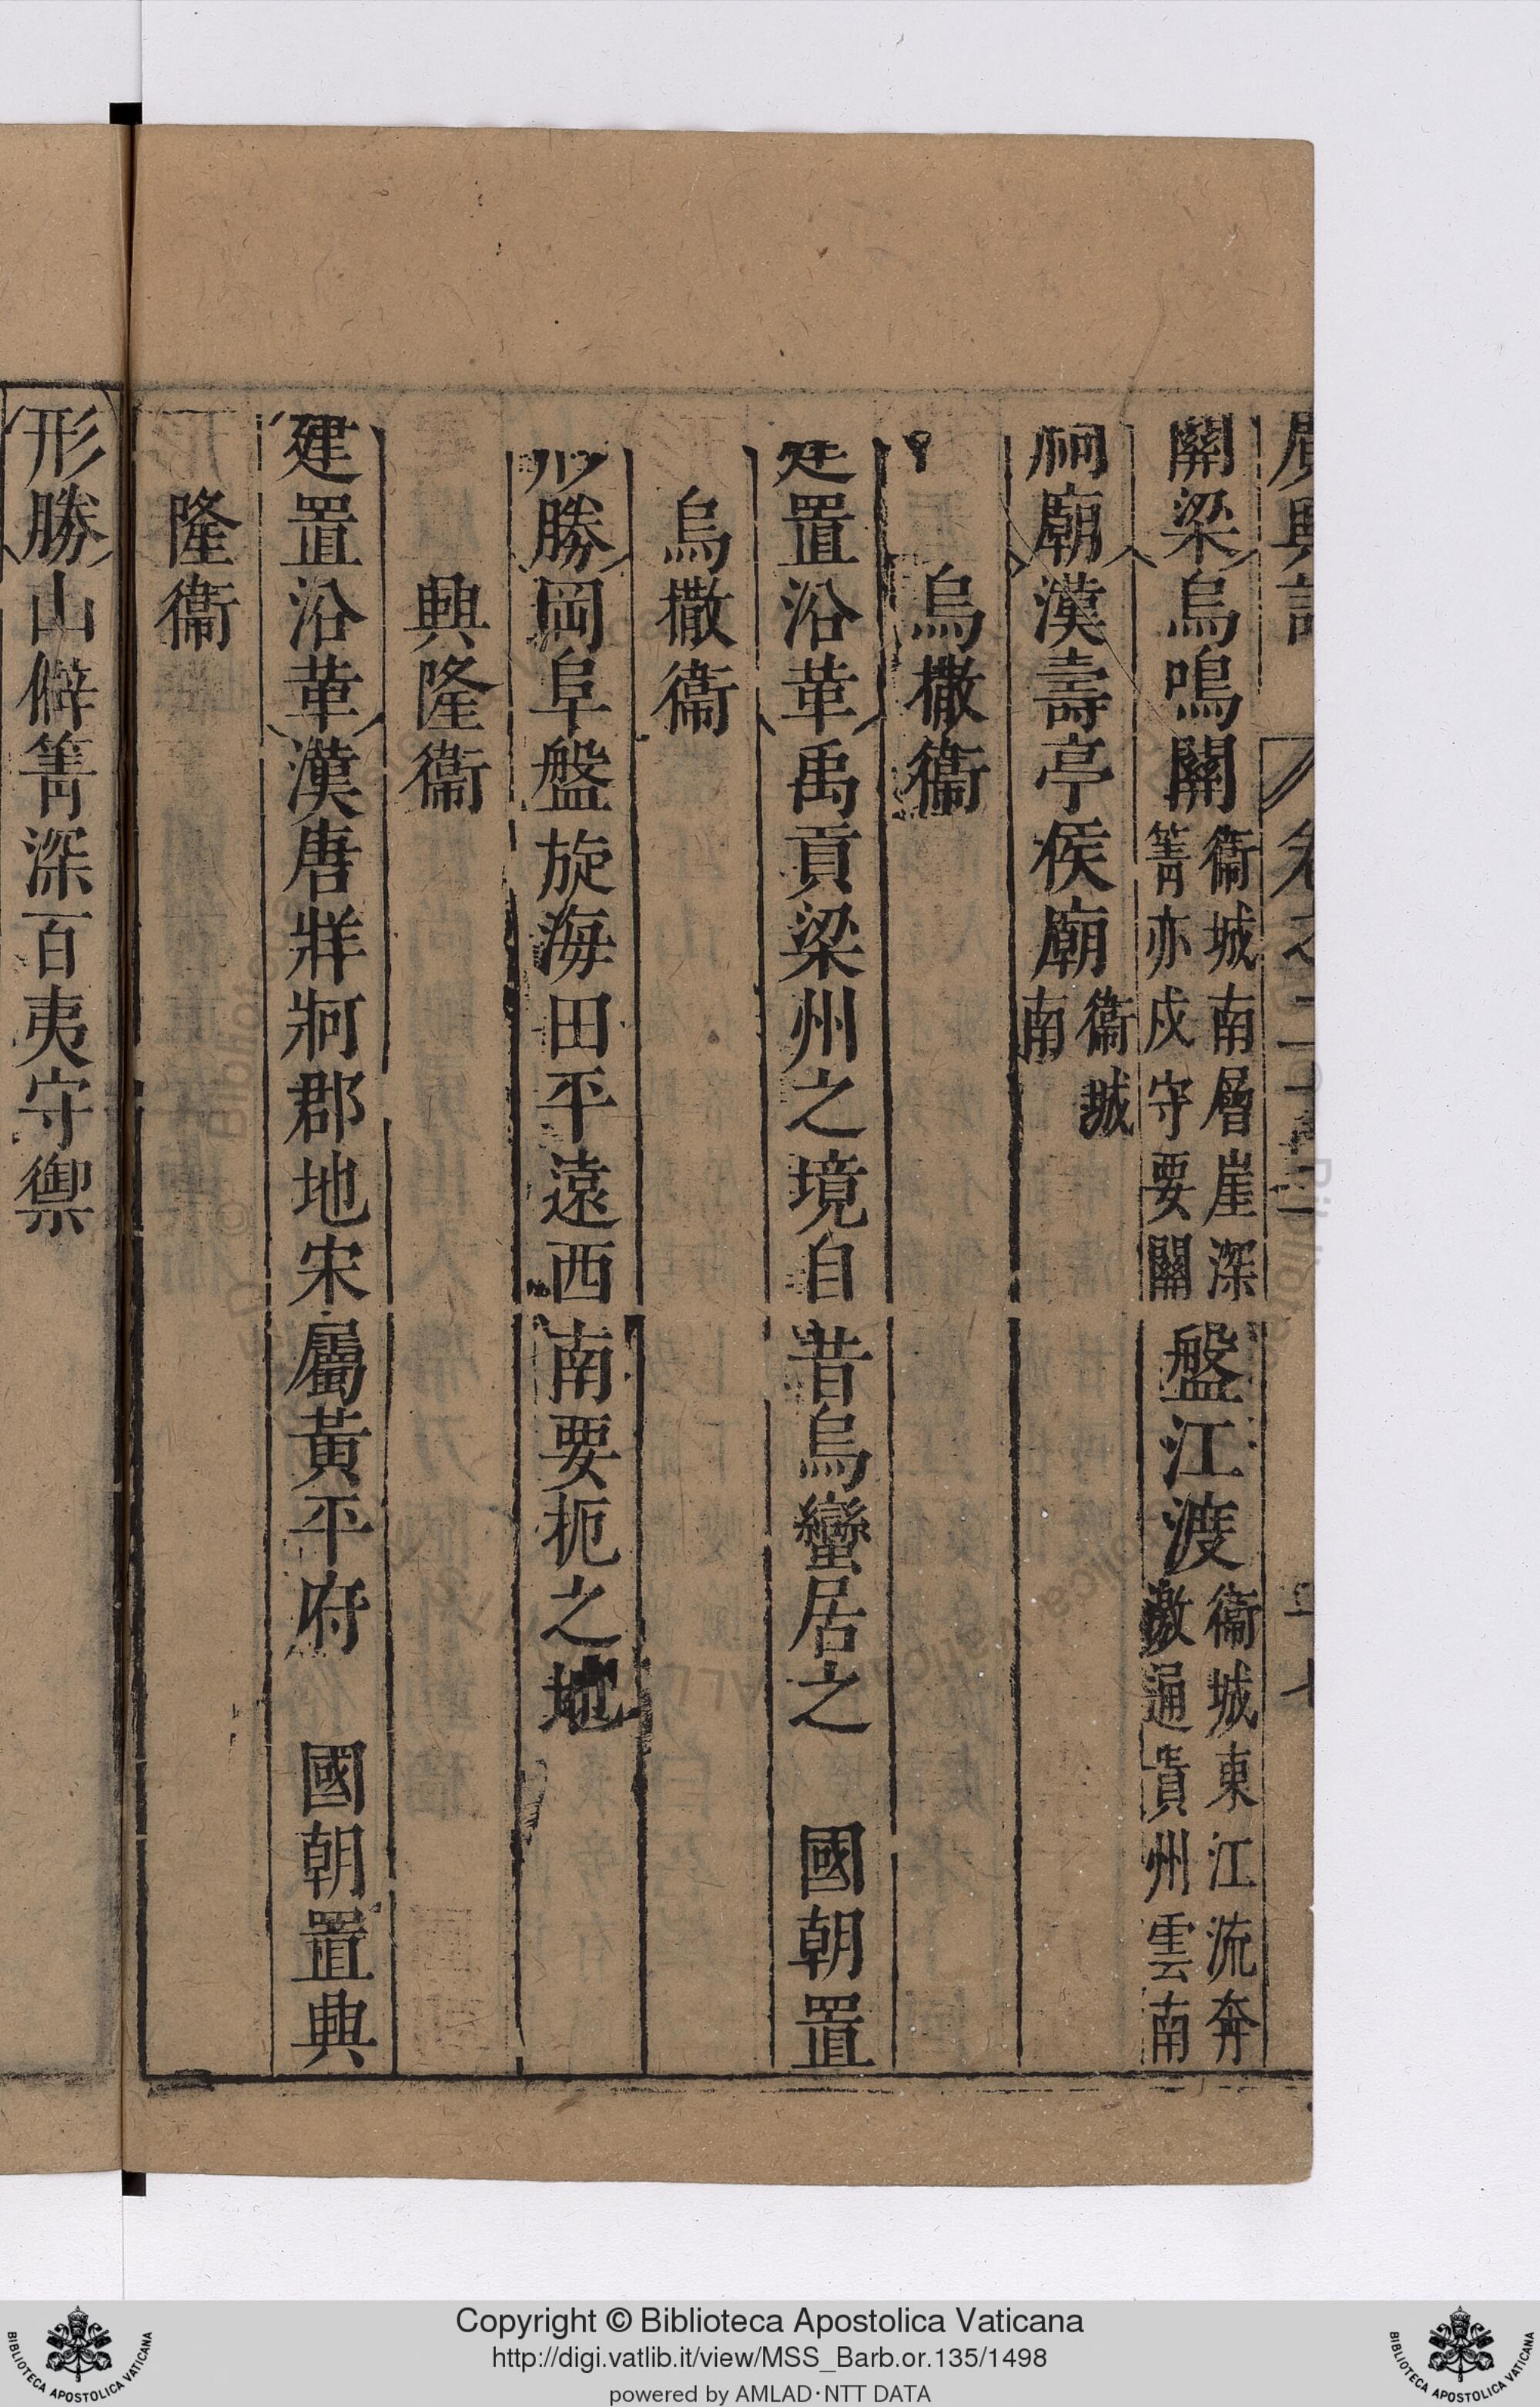 廣輿記 卷之二十
關梁烏鳴關衞城南層崖深箐亦戍守要關盤江渡衞城東江流奔激通貴州雲南
祠廟漢壽亭侯廟衞城南
烏撒衞
建置沿革禹貢梁州之境自昔烏蠻居之 國朝置
烏撒衞
形勝岡阜盤旋海田平遠西南要扼之地
興隆衞
建置沿革漢唐牂牁郡地宋屬黃平府 國朝置興
隆衞
形勝山僻箐深百夷守禦
Copyright © Biblioteca Apostolica Vaticana
http://digi.vatlib.it/view/MSS_Barb.or.135/1498
powered by AMLAD·NTT DATA
BIBLIOTECA APOSTOLICA VATICANA
BIBLIOTECA APOSTOLICA VATICANA